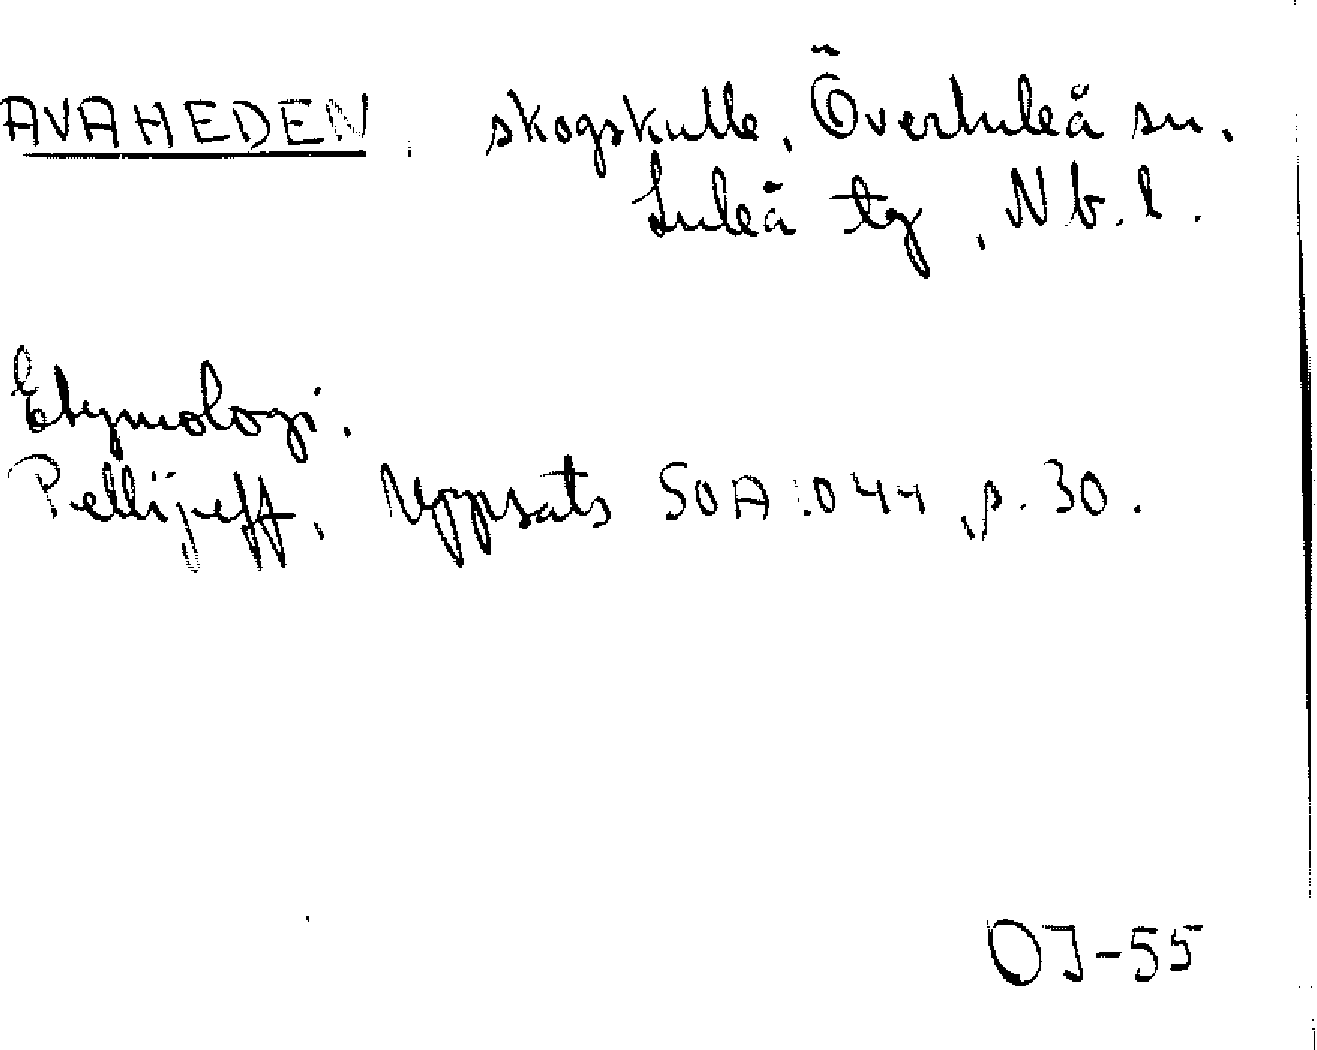 AVAHEDEN, skogskulle, Överluleå sn.
Luleå tg, Nb. l.
Etymologi.
Pellijeff, Uppsats SOA:044, p. 30.
OJ-55